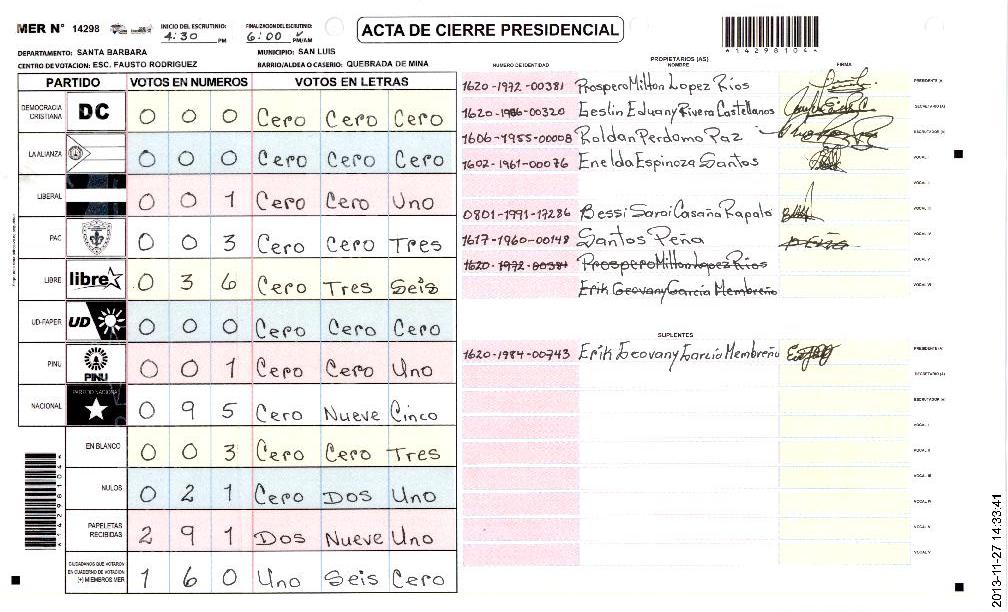 MER N° 14298
INICIO DEL ESCRUTINIO: 4:30 PM
FINALIZACION DEL ESCRUTINIO: 6:00 PM/AM
ACTA DE CIERRE PRESIDENCIAL
*1429810４*
DEPARTAMENTO: SANTA BARBARA
MUNICIPIO: SAN LUIS
CENTRO DE VOTACION: ESC. FAUSTO RODRIGUEZ
BARRIO/ALDEA O CASERIO: QUEBRADA DE MINA
PARTIDO VOTOS EN NUMEROS VOTOS EN LETRAS
DEMOCRACIA CRISTIANA DC 0 0 0 Cero Cero Cero
LA ALIANZA 0 0 0 Cero Cero Cero
LIBERAL 0 0 1 Cero Cero Uno
PAC 0 0 3 Cero Cero Tres
LIBRE libre 0 3 6 Cero Tres Seis
UD-FAPER UD 0 0 0 Cero Cero Cero
PINU PINU 0 0 1 Cero Cero Uno
NACIONAL PARTIDO NACIONAL 0 9 5 Cero Nueve Cinco
EN BLANCO 0 0 3 Cero Cero Tres
NULOS 0 2 1 Cero Dos Uno
PAPELETAS RECIBIDAS 2 9 1 Dos Nueve Uno
CIUDADANOS QUE VOTARON EN CUADERNO DE VOTACION (+) MIEMBROS MER 1 6 0 Uno Seis Cero
PROPIETARIOS (AS)
NUMERO DE IDENTIDAD NOMBRE FIRMA
1620-1972-00381 Prospero Milton Lopez Rios PRESIDENTE (A)
1620-1986-00320 Eeslin Eduany Rivera Castellanos SECRETARIO (A)
1606-1955-00008 Roldan Perdomo Paz ESCRUTADOR (A)
1602-1961-00076 Enelda Espinoza Santos VOCAL I
VOCAL II
0801-1991-17286 Bessi Sarai Casaña Rapalo VOCAL III
1617-1960-00148 Santos Peña PEÑA VOCAL IV
1620-1972-00381 Prospero Milton Lopez Rios VOCAL V
Erik Geovany Garcia Membreño VOCAL VI
SUPLENTES
1620-1984-00743 Erik Geovany Garcia Membreño PRESIDENTE (A)
SECRETARIO (A)
ESCRUTADOR (A)
VOCAL I
VOCAL II
VOCAL III
VOCAL IV
VOCAL V
2013-11-27 14:33:41